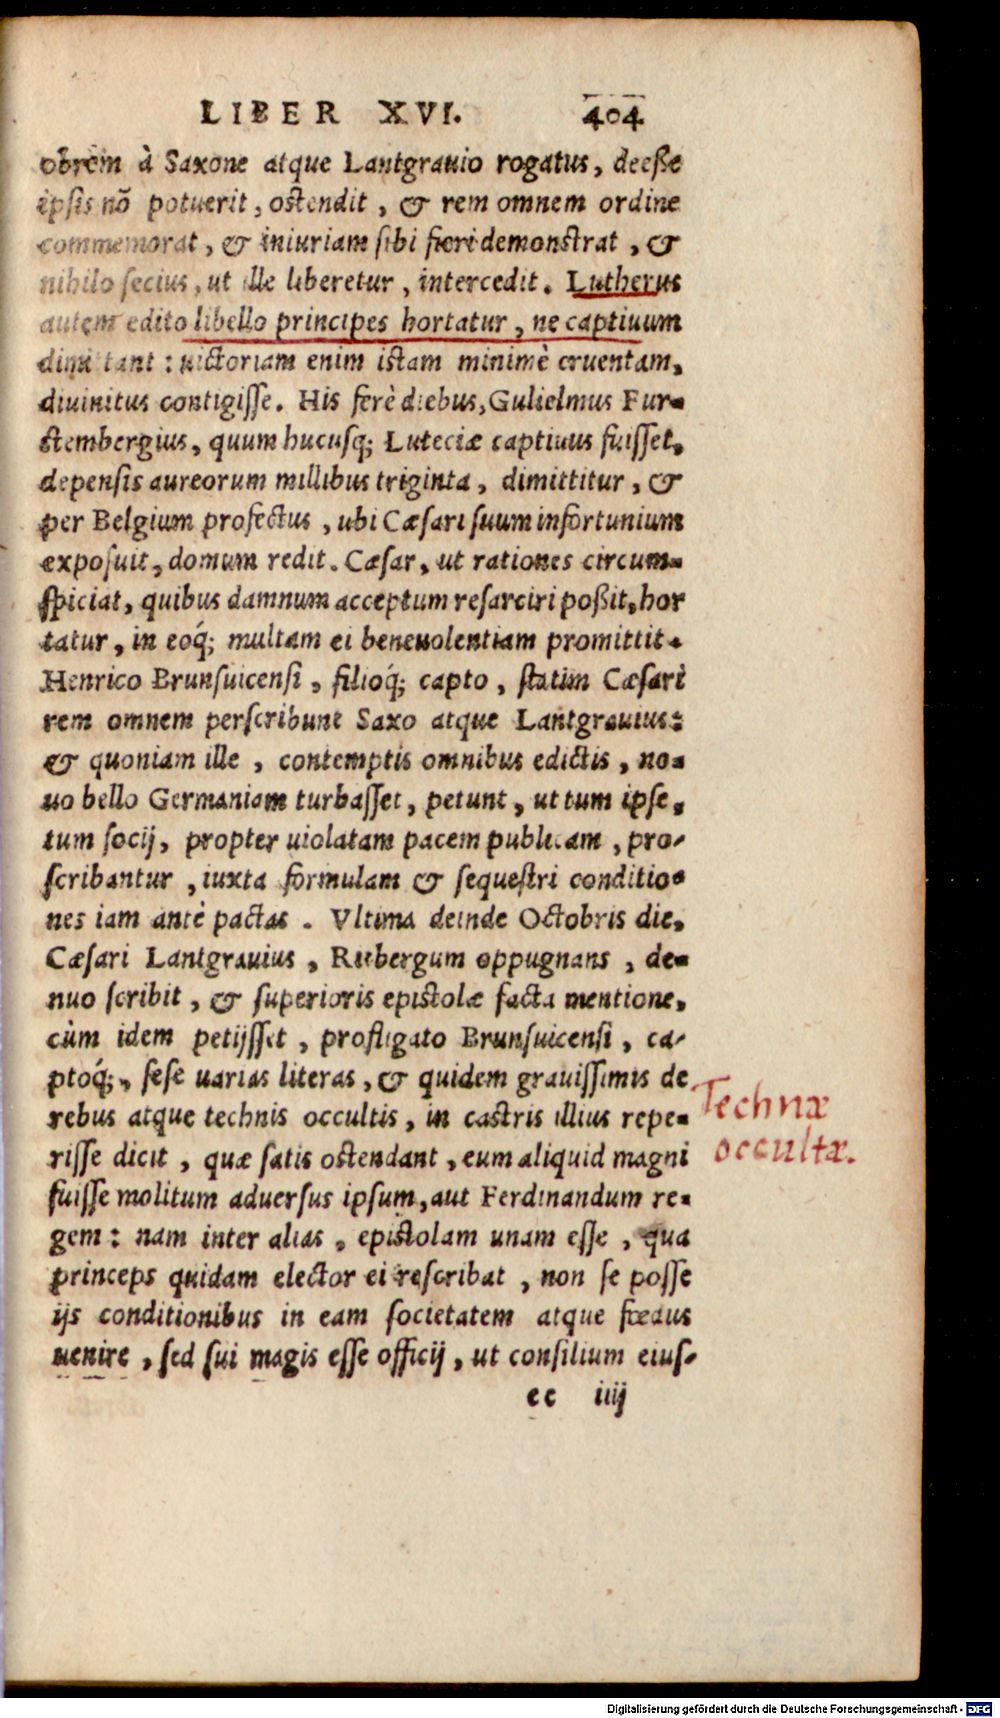 LIBER XVI. 404
obrem à Saxone atque Lantgrauio rogatus, deeße
ipsis nō potuerit, ostendit, & rem omnem ordine
commemorat, & iniuriam sibi fieri demonstrat, &
nihilo secius, ut ille liberetur, intercedit. Lutherus
autem edito libello principes hortatur, ne captiuum
dimittant: uictoriam enim istam minimè cruentam,
diuinitus contigisse. His ferè diebus, Gulielmus Fur-
stembergius, quum hucusq; Luteciæ captiuus fuisset,
depensis aureorum millibus triginta, dimittitur, &
per Belgium profectus, ubi Cæsari suum infortunium
exposuit, domum redit. Cæsar, ut rationes circum-
spiciat, quibus damnum acceptum resarciri poßit, hor
tatur, in eoq́; multam ei beneuolentiam promittit.
Henrico Brunsuicensi, filioq́; capto, statim Cæsari
rem omnem perscribunt Saxo atque Lantgrauius:
& quoniam ille, contemptis omnibus edictis, no-
uo bello Germaniam turbasset, petunt, ut tum ipse,
tum socij, propter uiolatam pacem publicam, pro-
scribantur, iuxta formulam & sequestri conditio-
nes iam antè pactas. Vltima deinde Octobris die,
Cæsari Lantgrauius, Rubergum oppugnans, de-
nuo scribit, & superioris epistolæ facta mentione,
cùm idem petijsset, profligato Brunsuicensi, ca-
ptoq́;, sese uarias literas, & quidem grauissimis de
rebus atque technis occultis, in castris illius repe-
risse dicit, quæ satis ostendant, eum aliquid magni
fuisse molitum aduersus ipsum, aut Ferdinandum re-
gem: nam inter alias, epistolam unam esse, qua
princeps quidam elector ei rescribat, non se posse
ijs conditionibus in eam societatem atque fœdus
uenire, sed sui magis esse officij, ut consilium eius-
ee iiij
Technæ
occultæ.
Digitalisierung gefördert durch die Deutsche Forschungsgemeinschaft - DFG